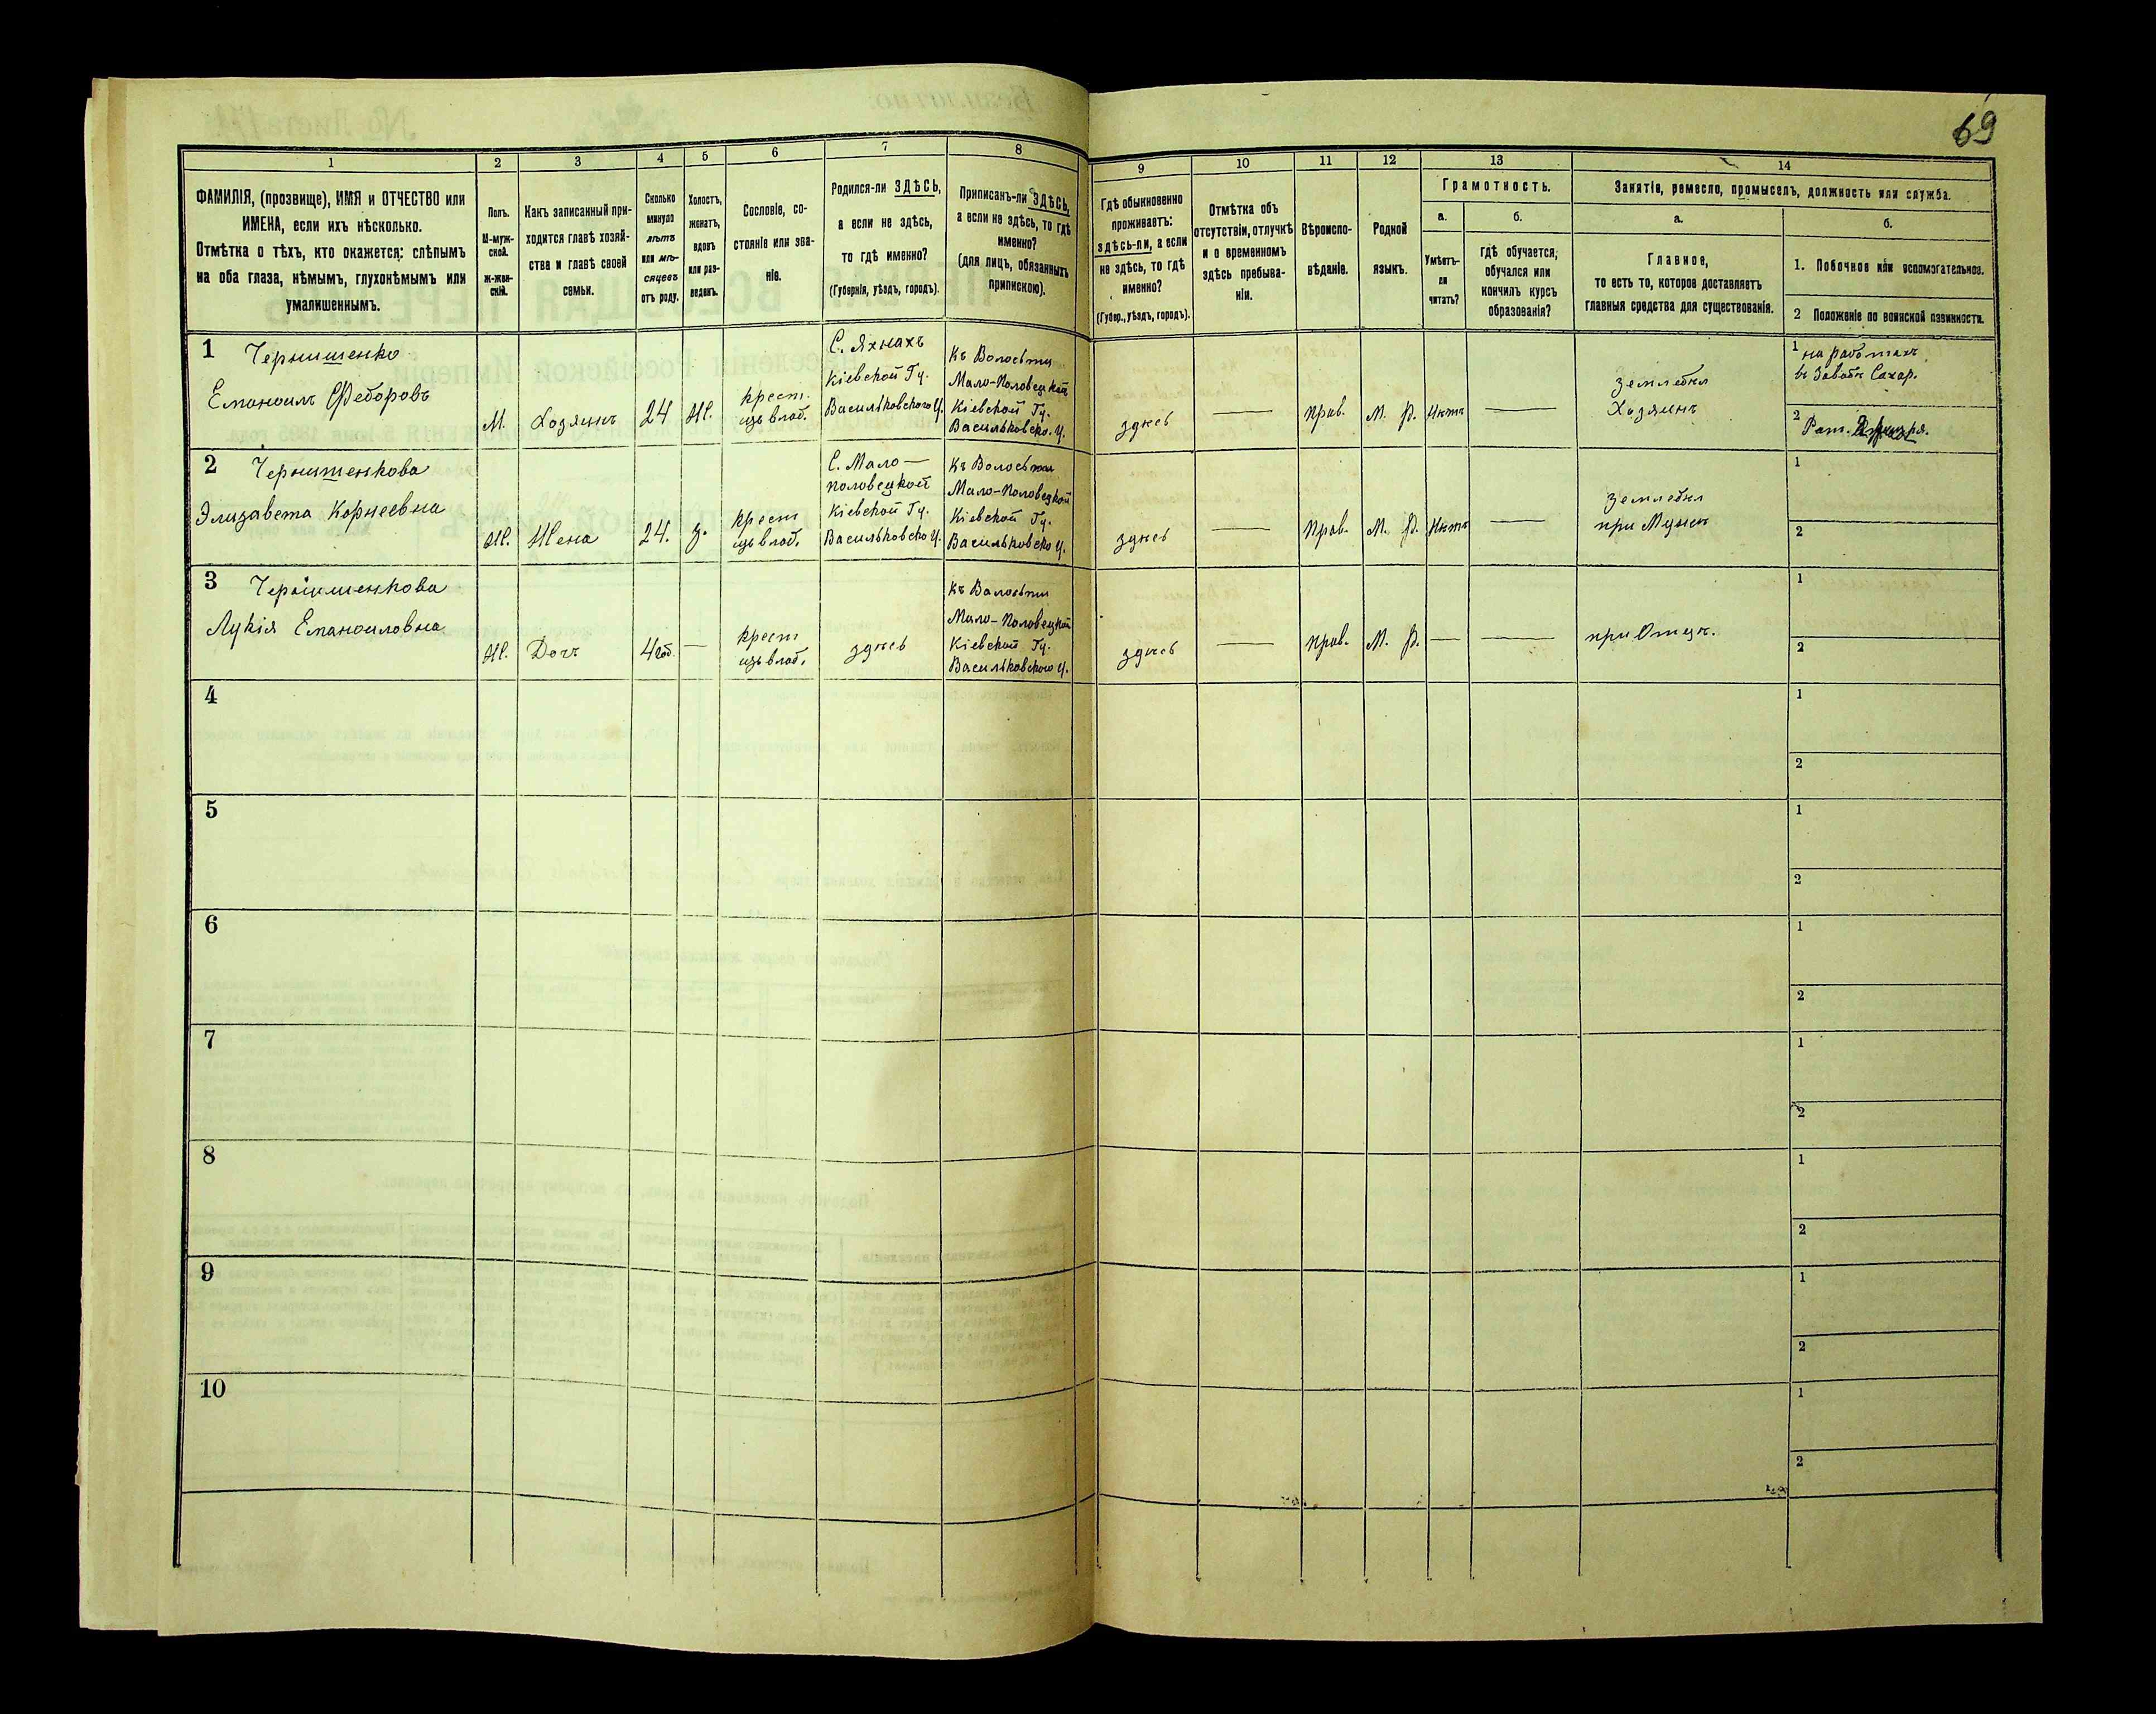 69
1 2 3 4 5 6 7 8 9 10 11 12 13 14
ФАМИЛІЯ, (прозвище), ИМЯ и ОТЧЕСТВО или
ИМЕНА, если ихъ нѣсколько.
Отмѣтка о тѣхъ, кто окажется: слѣпымъ
на оба глаза, нѣмымъ, глухонѣмымъ или
умалишеннымъ.
Полъ.
М-муж-
ской.
Ж-жен-
скій.
Какъ записанный при-
ходится главѣ хозяй-
ства и главѣ своей
семьи.
Сколько
минуло
лѣтъ
или мѣ-
сяцевъ
отъ роду.
Холостъ,
женатъ,
вдовъ
или раз-
веденъ.
Сословіе, со-
стояніе или зва-
ніе.
Родился-ли ЗДѢСЬ,
а если не здѣсь,
то гдѣ именно?
(Губернія, уѣздъ, городъ).
Приписанъ-ли ЗДѢСЬ,
а если не здѣсь, то гдѣ
именно?
(для лицъ, обязанныхъ
припискою).
Гдѣ обыкновенно
проживаетъ:
здѣсь-ли, а если
не здѣсь, то гдѣ
именно?
(Губер., уѣздъ, городъ).
Отмѣтка объ
отсутствіи, отлучкѣ
и о временномъ
здѣсь пребыва-
ніи.
Вѣроиспо-
вѣданіе.
Родной
языкъ.
Грамотность.
а.
Умѣетъ-
ли
читать?
б.
Гдѣ обучается,
обучался или
кончилъ курсъ
образованія?
Занятіе, ремесло, промыселъ, должность или служба.
а.
Главное,
то есть то, которое доставляетъ
главныя средства для существованія.
б.
1. Побочное или вспомогательное.
2 Положеніе по воинской повинности.
1 Чернишенко
Емануилъ Федоровъ
М.
Хозяинъ
24
Ж.
крест.
изъ влад.
С. Яхнахъ
Кіевской Гу.
Васильковского У.
Къ Волости
Мало-Половецкой
Кіевской Гу.
Васильковско. У.
здѣсь
—
прав.
М. Р.
нѣтъ
—
земледѣл
Хозяинъ
1 на работахъ
въ Заводѣ Сахар.
2 Рат.
2 Чернишенкова
Элизавета Корнеевна
Ж.
Жена
24.
З.
крест
изъ влад.
С. Мало—
половецкой
Кіевской Гу.
Васильковско У.
Къ Волости
Мало-Половецкой
Кіевской Гу.
Васильковско У.
здѣсь
—
Прав.
М. Р.
Нѣтъ
—
земледѣл
при Мужѣ
1
2
3 Чернишенкова
Лукія Емануиловна
Ж.
Дочъ
4 год.
—
крест
изъ влад.
здѣсь
Къ Волости
Мало-Половецкой
Кіевской Гу.
Васильковского У.
здѣсь
—
прав.
М. Р.
—
—
при Отцѣ.
1
2
4
1
2
5
1
2
6
1
2
7
1
2
8
1
2
9
1
2
10
1
2